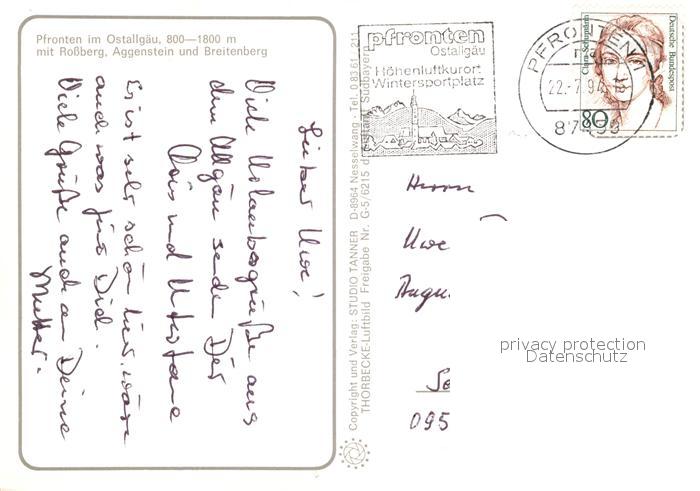 Pfronten im Ostallgäu, 800—1800 m
mit Roßberg, Aggenstein und Breitenberg
Lieber Uwe!
Viele Urlaubsgrüße aus
dem Allgäu senden Dir
Alois und Utestane
Es ist sehr schön hier, wäre
auch was für Dich.
Viele Grüße auch an Deine
Mutter.
Copyright und Verlag: STUDIO TANNER D-8964 Nesselwang · Tel. 0 83 61 - 211
THORBECKE-Luftbild Freigabe Nr. G-5/6215 Südbayern
pfronten
Ostallgäu
Höhenluftkurort
Wintersportplatz
PFRONTEN 1
22.-7.94
87459
Clara Schumann
Deutsche Bundespost
80
Herrn
Uwe
Augu
So
095
privacy protection
Datenschutz